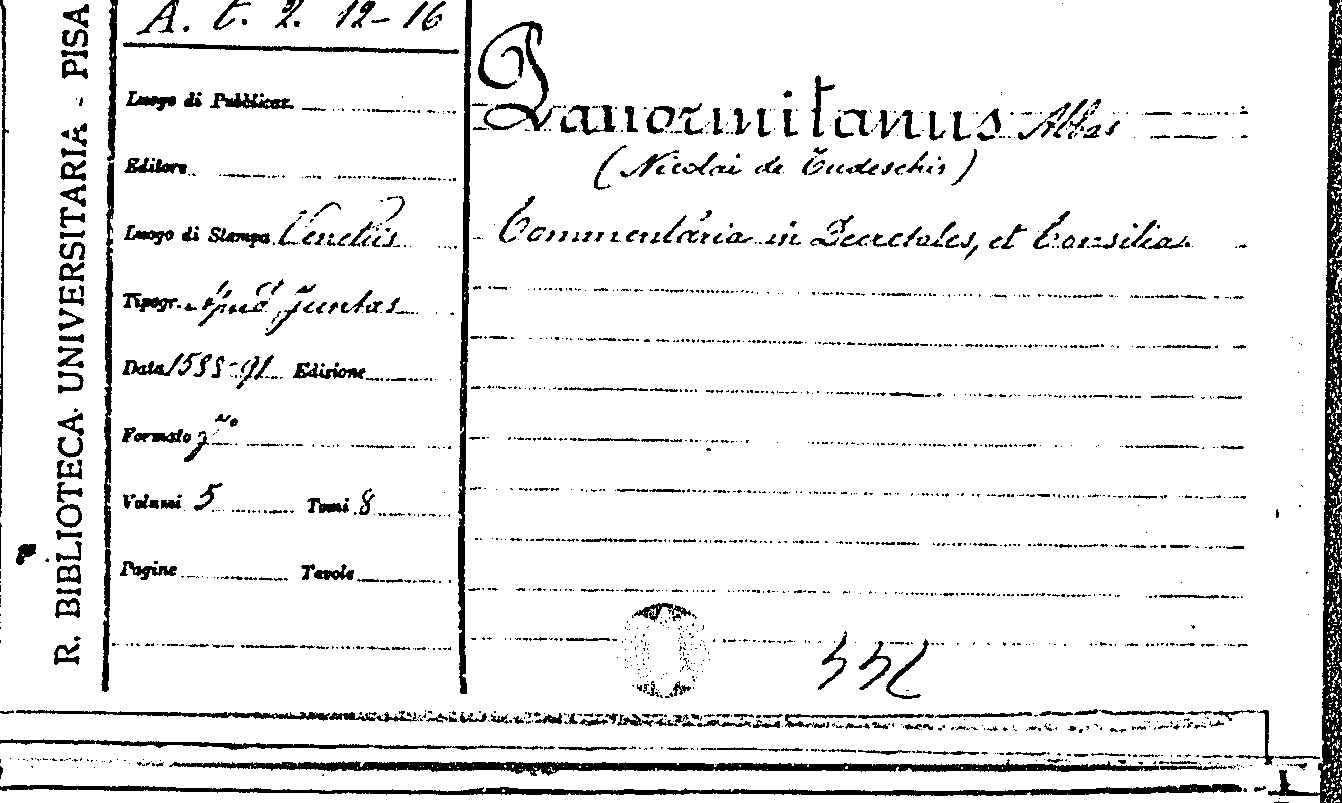 R. BIBLIOTECA UNIVERSITARIA - PISA
A. t. 2. 12-16
Luogo di Pubblicaz.
Editore
Luogo di Stampa Venetiis
Tipogr. Apud Juntas
Data 1588-91 Edizione
Formato
Volumi 5 Tomi 8
Pagine Tavole
Panormitanus Abbas
(Nicolai de Tudeschis)
Commentaria in Decretales, et Consilia.